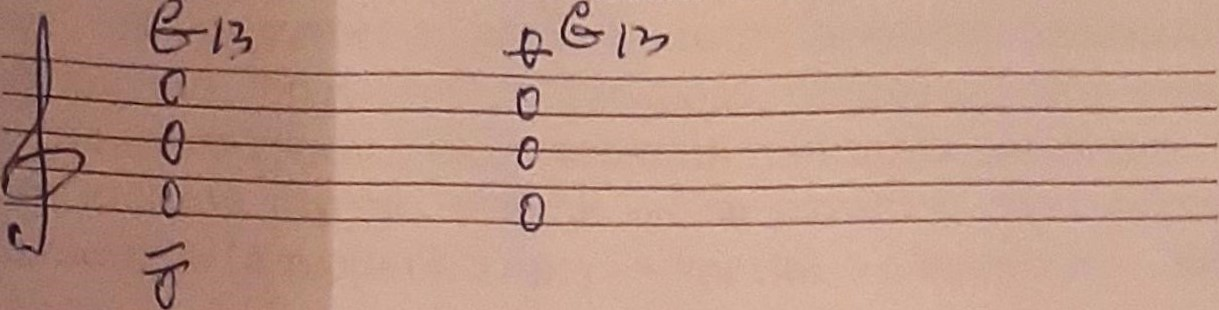 G13 G13